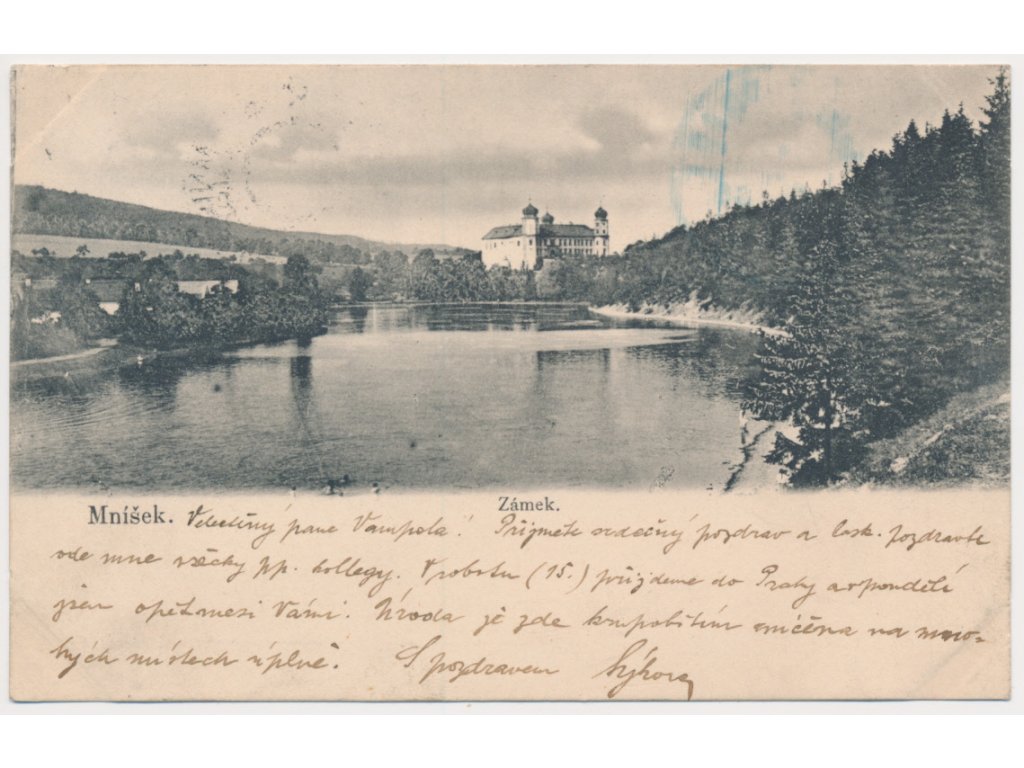 Mníšek. Zámek.
Velectěný pane Vampola! Přijměte srdečný pozdrav a lask. pozdravte
ode mne všecky pp. kollegy. V sobotu (15.) přijdeme do Prahy a v pondělí
jsem opět mezi Vámi. Úroda je zde krupobitím zničena na mno-
hých místech úplně. S pozdravem Sýkora